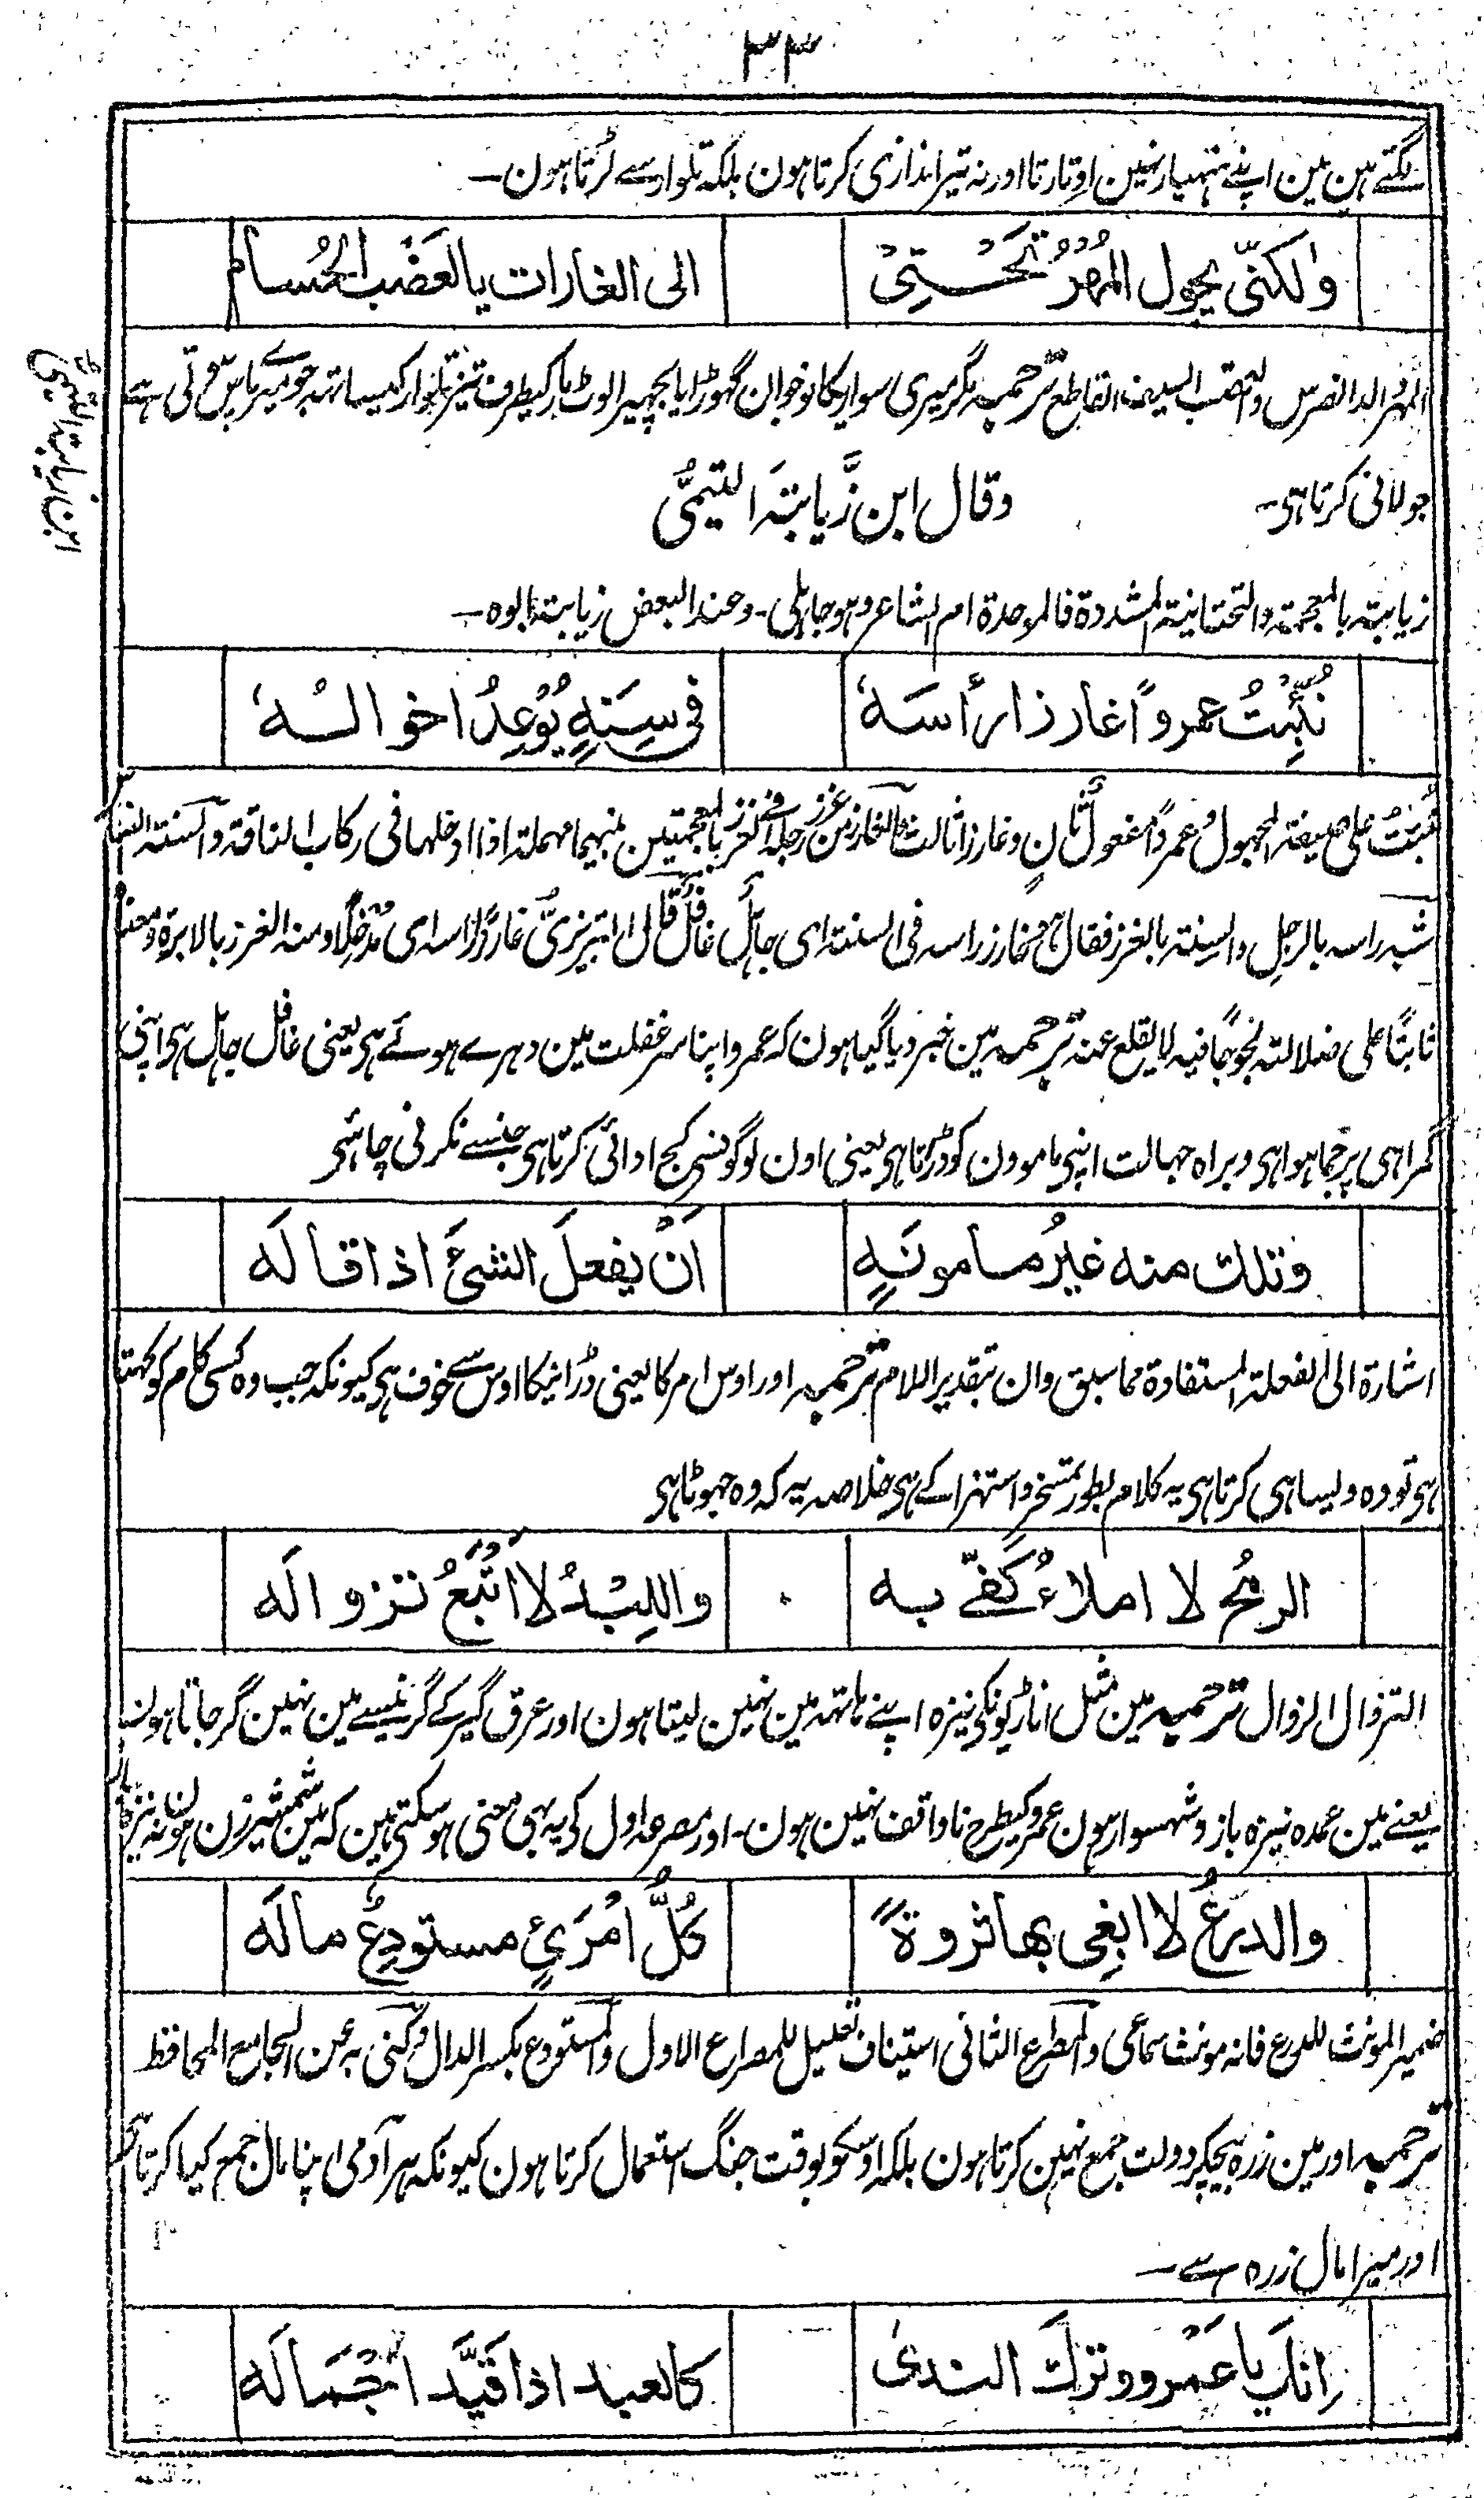 ۳۳
لگتے ہین مین اپنے ہتہیار نہین اوتارتا اور نہ تیر اندازی کرتا ہون بلکہ تلوار سے لڑتا ہون ـ
ولكنّي يجول المُهْرُ تَحْتِيْ الى الغارات بالعَضْب الحُسام
المُہرُ الدالفرس والعضب السیف القاطع ترجمہ مگر میری سواریکا نوخوان گہوڑا یا بچہیرا لوٹ مار کیطرف تیز تلوار کیساتہہ جو میرے پاس ہوتی ہے
جولانی کرتا ہی ـ وقال ابن زَیَّابتہ التیمیُّ
ابن زیابتہ التیمی
زیابتہ بالمعجمتہ والتحتانیتہ المشددۃ فالموحدۃ ام الشاعر وہو جاہلی ـ وعند البعض زیابتہ ابوہ ـ
نُبِّئْتُ عمروًا غارزا رأسَهٗ في سِنَةٍ يُوْعِدُ اخوالَهٗ
نُبئتُ علی صیغتہ المجہول وعمرواً مفعول ثانٍ وغارزا ثالث والغارز من غرز رجلہ فی الغرز بالمعجمتین بینہما مہملتہ اذا ادخلہا فی رکاب الناقۃ والسنتہ
شبہ راسہ بالرجل والسنتہ بالغرز فقال غارز راسہ فی السنتہ ای جاہل غافل قال التبریزیُّ غارزًا راسہ ای مُدخِلًا ومنہ الغرز بالابرۃ ومعنا
ثابتًا علی ضلالتہ لجوجًا فیہ لا یقلع عنہ ترجمہ مین خبر دیا گیا ہون کہ عمرو اپنا سر غفلت مین دہرے ہوئے ہی یعنی غافل جاہل ہی اپنی
گمراہی پر جما ہوا ہی وبراہ جہالت اپنی ماموون کو ڈراتا ہی یعنی اون لوگونسی کج ادائی کرتا ہی جنسے نکرنی چاہئی
وتلك منه غيرُ مامونَةٍ اَنْ يفعلَ الشئَ اذا قالَه
اشارۃ الی الفعلۃ المستفادۃ مما سبق وان بتقدیر اللام ترجمہ اور اوس امر کا یعنی ڈرانیکا اوس سے خوف ہی کیونکہ جب وہ کسی کلام کو کہتا
ہی تو وہ ویسا ہی کرتا ہی یہ کلام بطور تمسخر واستہزا کے ہی خلاصہ یہ کہ وہ جہوٹا ہی
الرمحُ لا املاءُ كَفّي به واللِبْدُ لا اَتْبَعُ تزوالَه
التزوال الزوال ترجمہ مین مثل اناڑیونکی نیزہ اپنے ہاتہہ مین نہین لیتا ہون اور عرق گیر کے گرنیسے مین نہین گر جاتا ہون
یعنے مین عمدہ نیزہ باز و شہسوار ہون عمرو کیطرح ناواقف نہین ہون ـ اور مصرعہ اول کی یہ بہی معنی ہو سکتی ہین کہ مین شمشیر زن ہون نہ نیزہ
والدرعُ لا ابغِي بها ثروةً كُلُّ امْرَئٍ مستودِعٌ مالَه
ضمیر المونث للدرع فانہ مونث سماعی والمطرع الثانی استیناف تعلیل للمصراع الاول والمستودع بکسر الدال وکنی بہ عن الجامع المحافظ
ترجمہ اور مین زرہ بیچکر دولت جمع نہین کرتا ہون بلکہ اوسکو بوقت جنگ استعمال کرتا ہون کیونکہ ہر آدمی اپنا مال جمع کیا کرتا ہے
اور میرا مال زرہ ہے ـ
اِنكَ يا عَمْرو وتركَ الندىٰ كالعبد اذا قَيَّد اَجْمَالَه